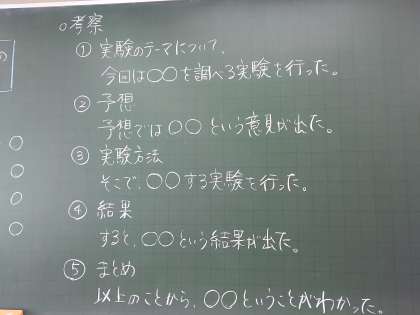 ○考察
① 実験のテーマについて、
今回は○○を調べる実験を行った。
② 予想
予想では○○という意見が出た。
③ 実験方法
そこで、○○する実験を行った。
④ 結果
すると、○○という結果が出た。
⑤ まとめ
以上のことから、○○ということがわかった。
の
○
○
○
○